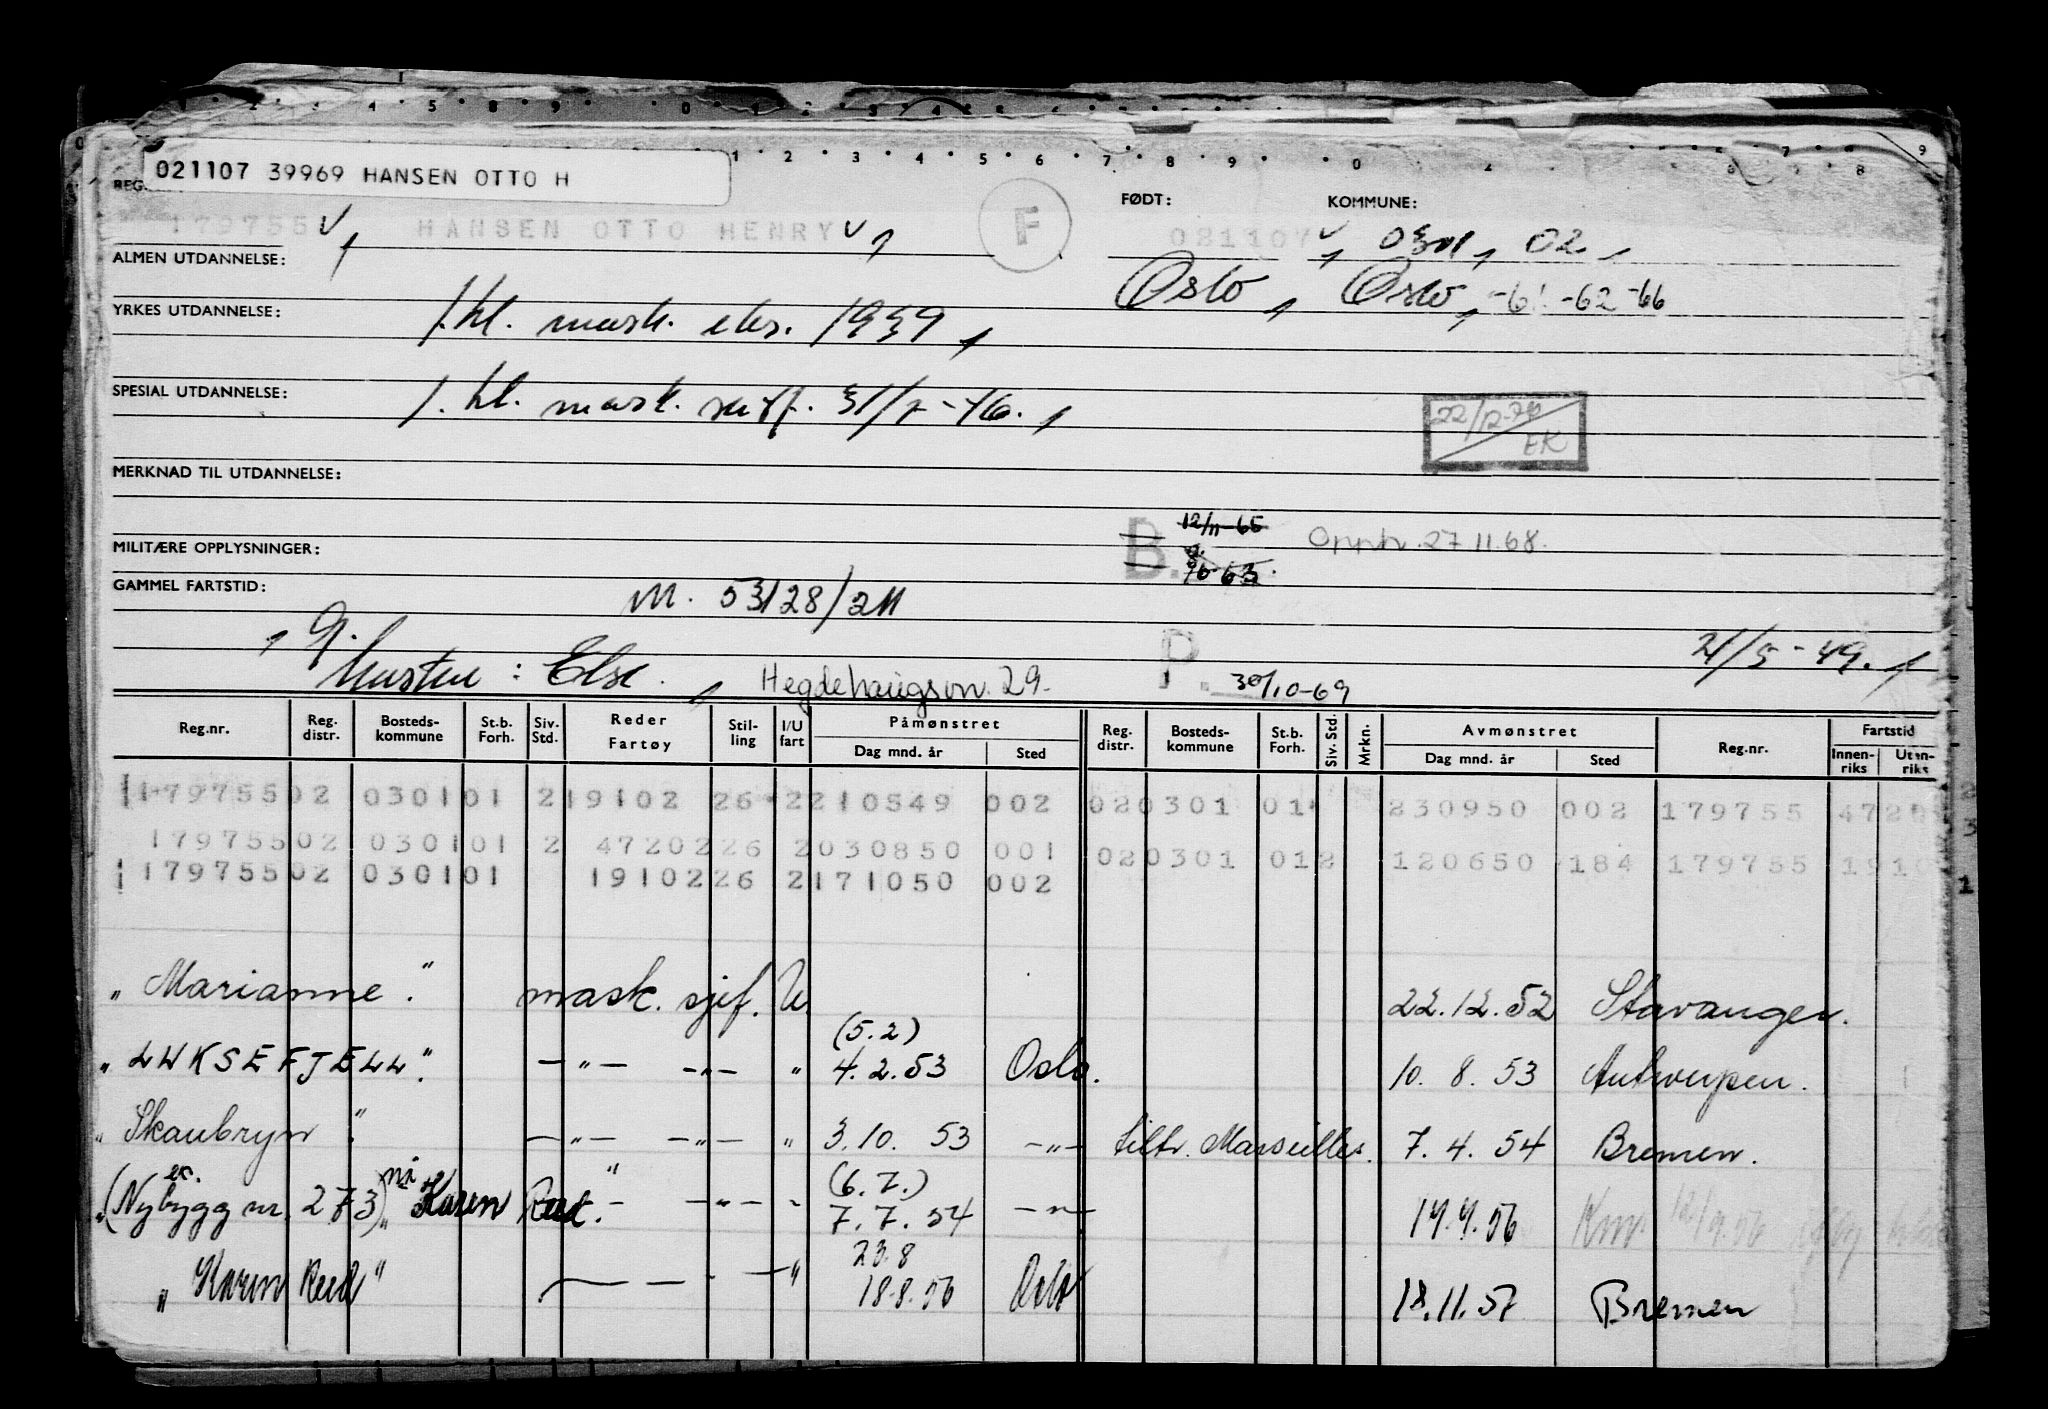 021107 39969 HANSEN OTTO H
REG.
FØDT: KOMMUNE:
179755 HANSEN OTTO HENRY F 021107 0301, 02,
ALMEN UTDANNELSE:
Oslo, Oslo, -61 -62 -66
YRKES UTDANNELSE: 1.kl. mask. eks. 1939,
SPESIAL UTDANNELSE: 1. kl. mask. sert. 31/7-46.,
22/12-70
EK
MERKNAD TIL UTDANNELSE:
B. 12/11-65 Opph. 27.11.68.
MILITÆRE OPPLYSNINGER:
GAMMEL FARTSTID: M. 53128/211
, G. 21/5-49.,
Hustru: Else., Hegdehaugsvn. 29. P. 30/10-69
Reg.nr. Reg. distr. Bosteds-kommune St.b. Forh. Siv. Std. Reder Fartøy Stil-ling I/U fart Påmønstret Dag mnd. år Sted Reg. distr. Bosteds-kommune St.b. Forh. Siv. Std. Mrkn. Avmønstret Dag mnd. år Sted Reg.nr. Fartstid Innen-riks Uten-riks
179755 02 0301 01 2 19102 26 2 210549 002 02 0301 01 230950 002 179755 472
179755 02 0301 01 2 47202 26 2 030850 001 02 0301 01 2 120650 184 179755 191
179755 02 0301 01 19102 26 2 171050 002
"Marianne". mask. sjef. U. 22.12.52 Stavanger.
(5.2)
"LUKSEFJELL". -"- -"- " 4.2.53 Oslo. 10. 8. 53 Antwerpen.
"Skaubryn". -"- -"- " 3.10. 53 -"- tiltr. Marseilles. 7. 4. 54 Bremen.
ex. nå (6.7.)
"(Nybygg nr. 273) "Karen Reed". - -"- " 7.7.54 -"- 19.9.56
23.8
"Karen Reed" - " 18.8.56 Oslo 18.11.57 Bremen